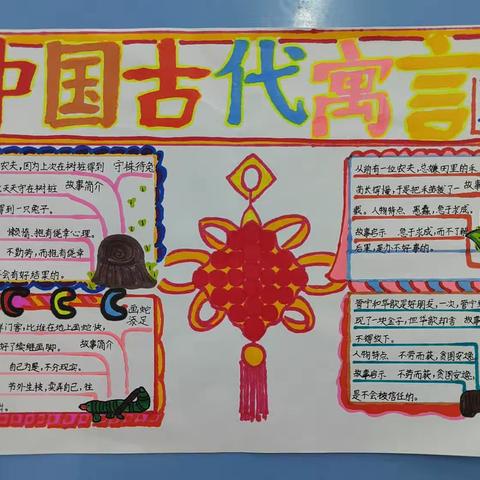 中国古代寓言
农夫,因为上次在树桩得到
守株待兔
天天守在树桩
故事简介
得到一只兔子。
懒惰,抱有侥幸心理。
不勤劳,而抱有侥幸
不会有好结果的。
画蛇
添足
门客,比谁在地上画蛇快,
好了续继画脚。
故事简介
自己为是,不分现实。
节外生枝,卖弄自己,往
从前有一位农夫,总嫌田里的禾
苗长得慢,于是把禾苗拔了一
故事
截。人物特点 愚蠢,急于求成。
故事启示 急于求成,而不了解
后果,是办不好事的。
管宁和华歆是好朋友,一次,管宁
现了一块金子,但华歆却舍
故事
不得放下。
人物特点 不劳而获,贪图安逸
故事启示 不劳而获,贪图安逸,
是不会被信任的。